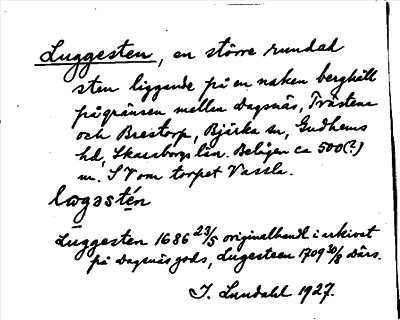 Luggesten, en större rundad
sten liggande på en naken berghäll
på gränsen mellan Dagsnäs, Trästena
och Brestorp, Bjärka sn, Gudhems
hd, Skaraborgs län. Belägen ca 500(?)
m. SV om torpet Vassla.
lωgɜstén
Luggesten 1686 23/5 originalhandl i arkivet
på Dagsnäs gods, Lugesteen 1709 30/8 Därs.
I. Lundahl 1927.